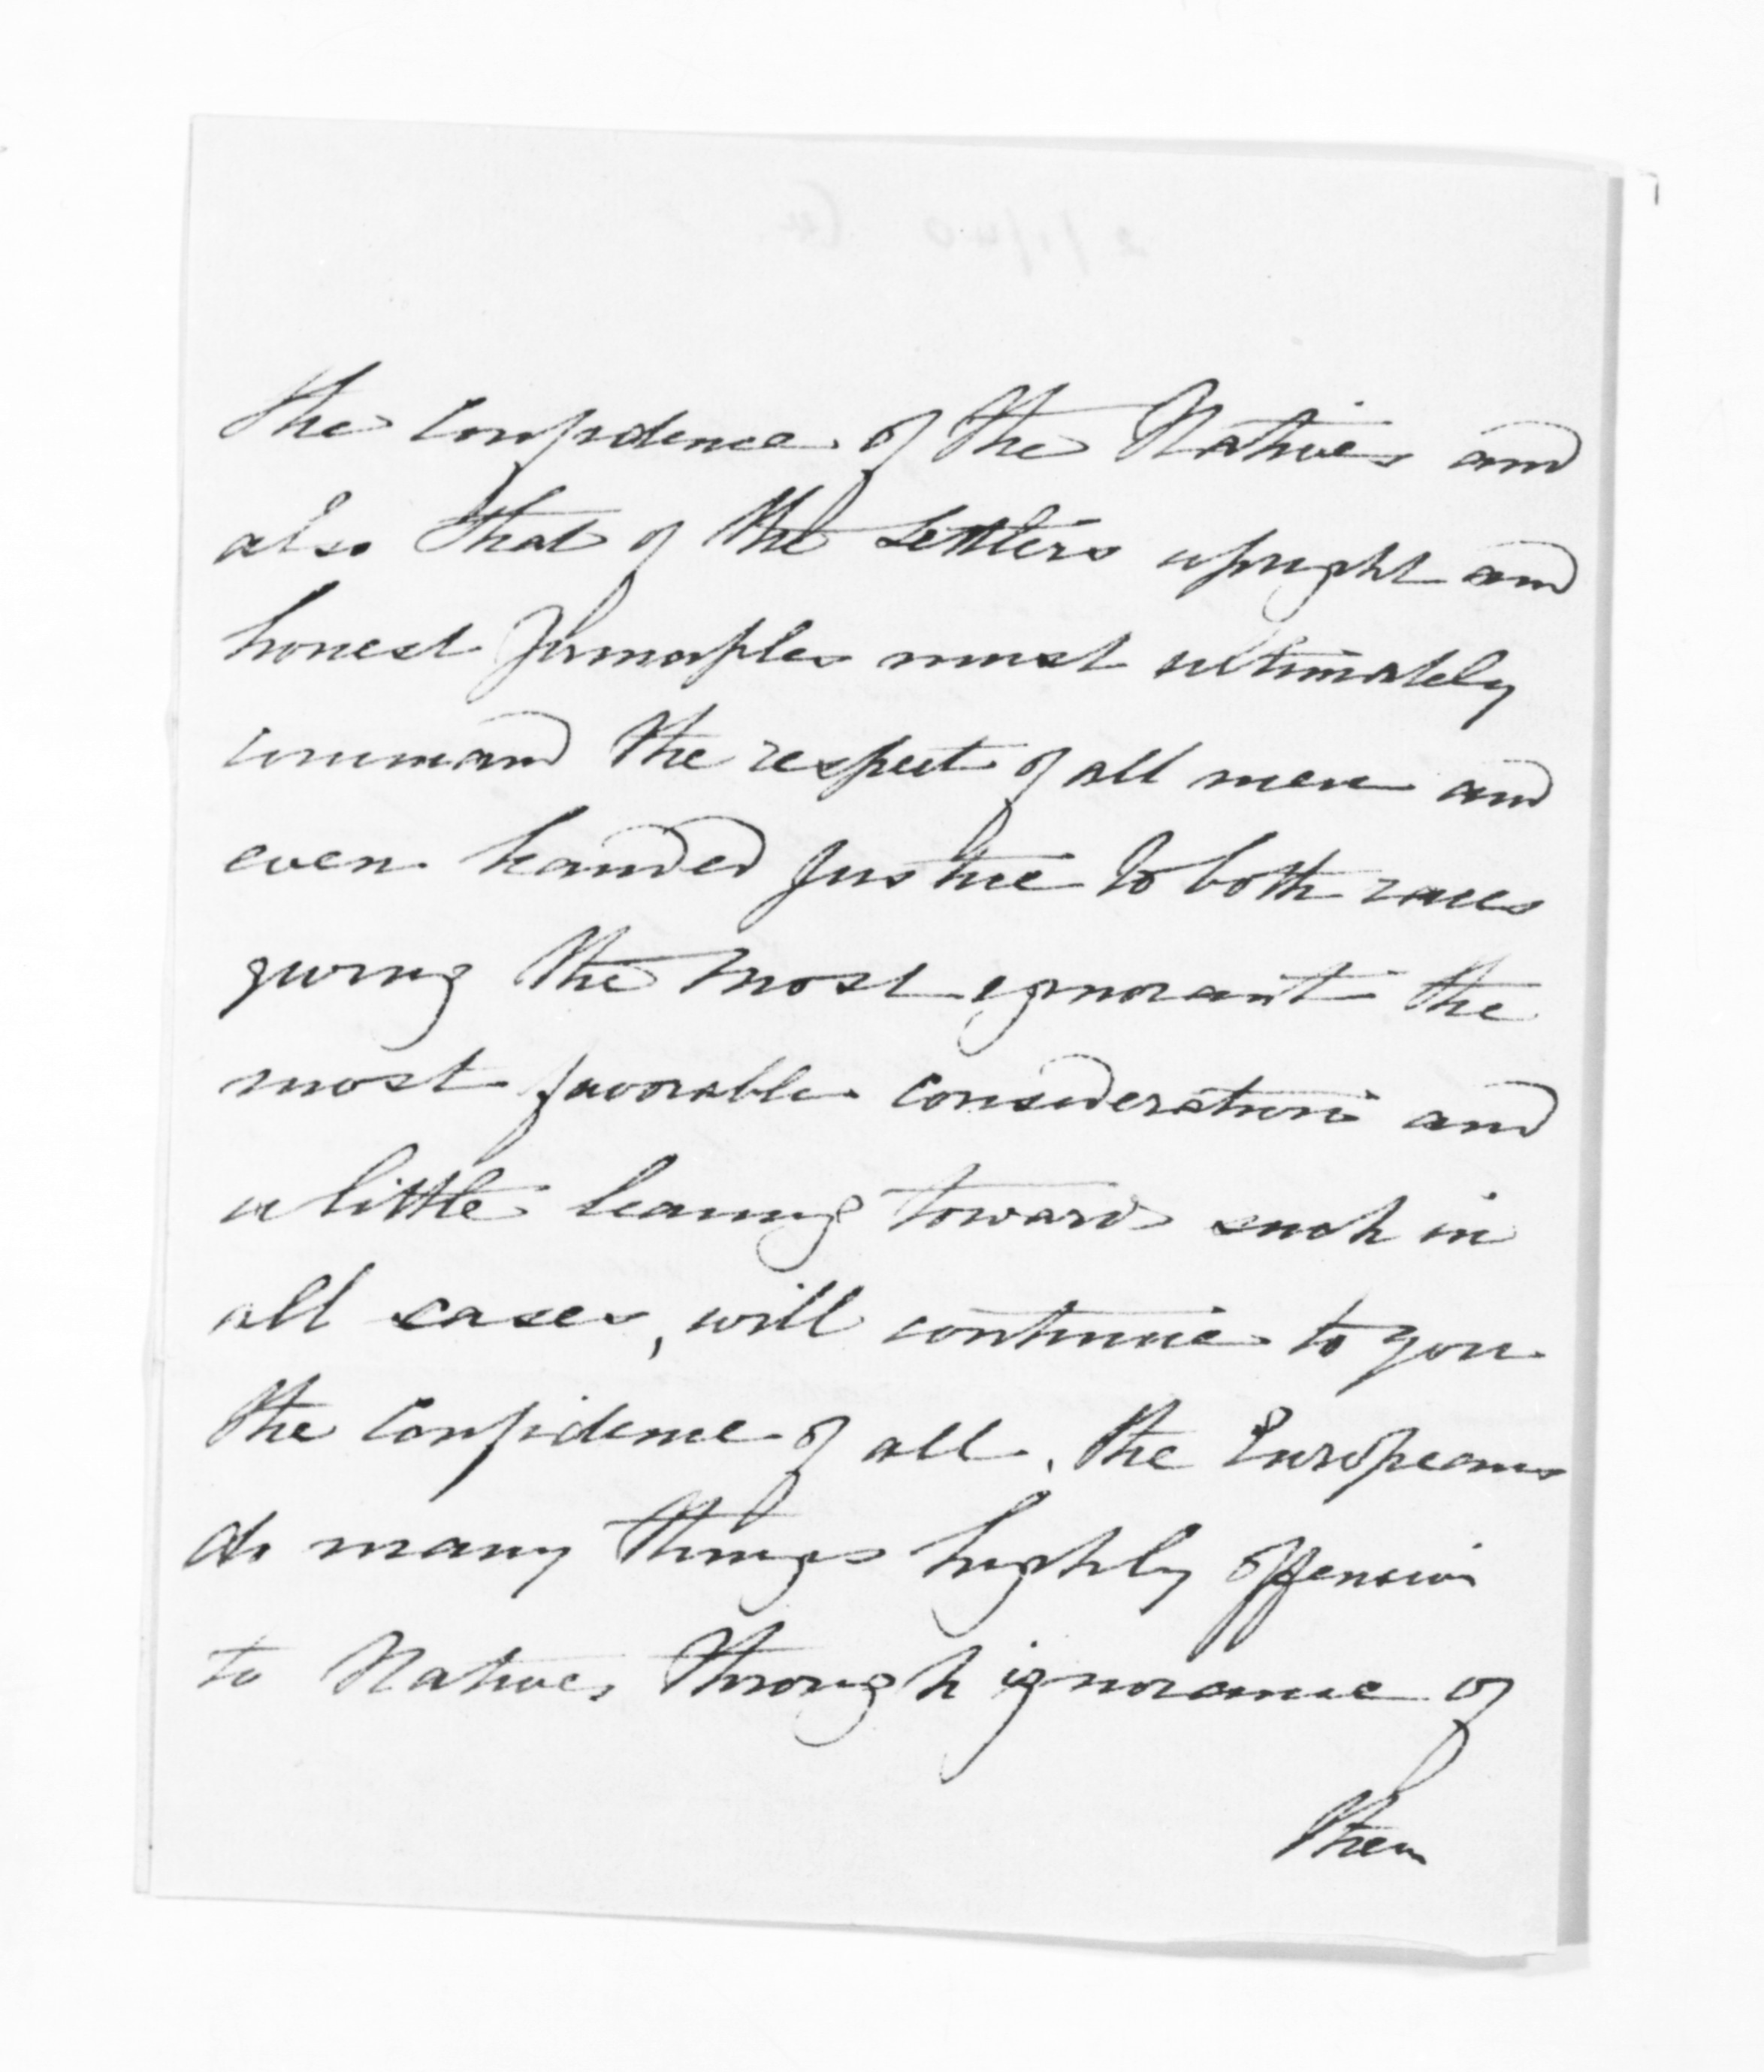 the confidence of the Natives and
also that of the Settlers upright and
honest principles must ultimately
command the respect of all men and
even handed Justice to both races
giving the most ignorant the
most favorable consideration and
a little leaning towards such in
all cases, will continue to you
the confidence of all. the Europeans
do many things highly offensive
to Natives through ignorance of
them